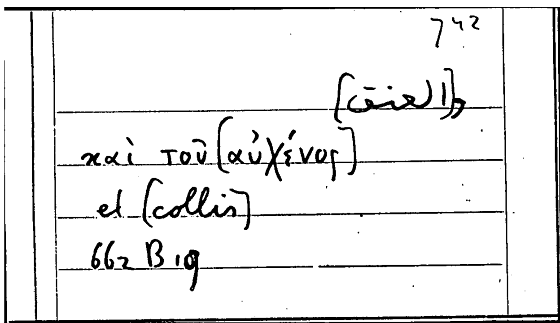 742
καὶ τοῦ [αὐχένος]
et [collis]
662 B 19